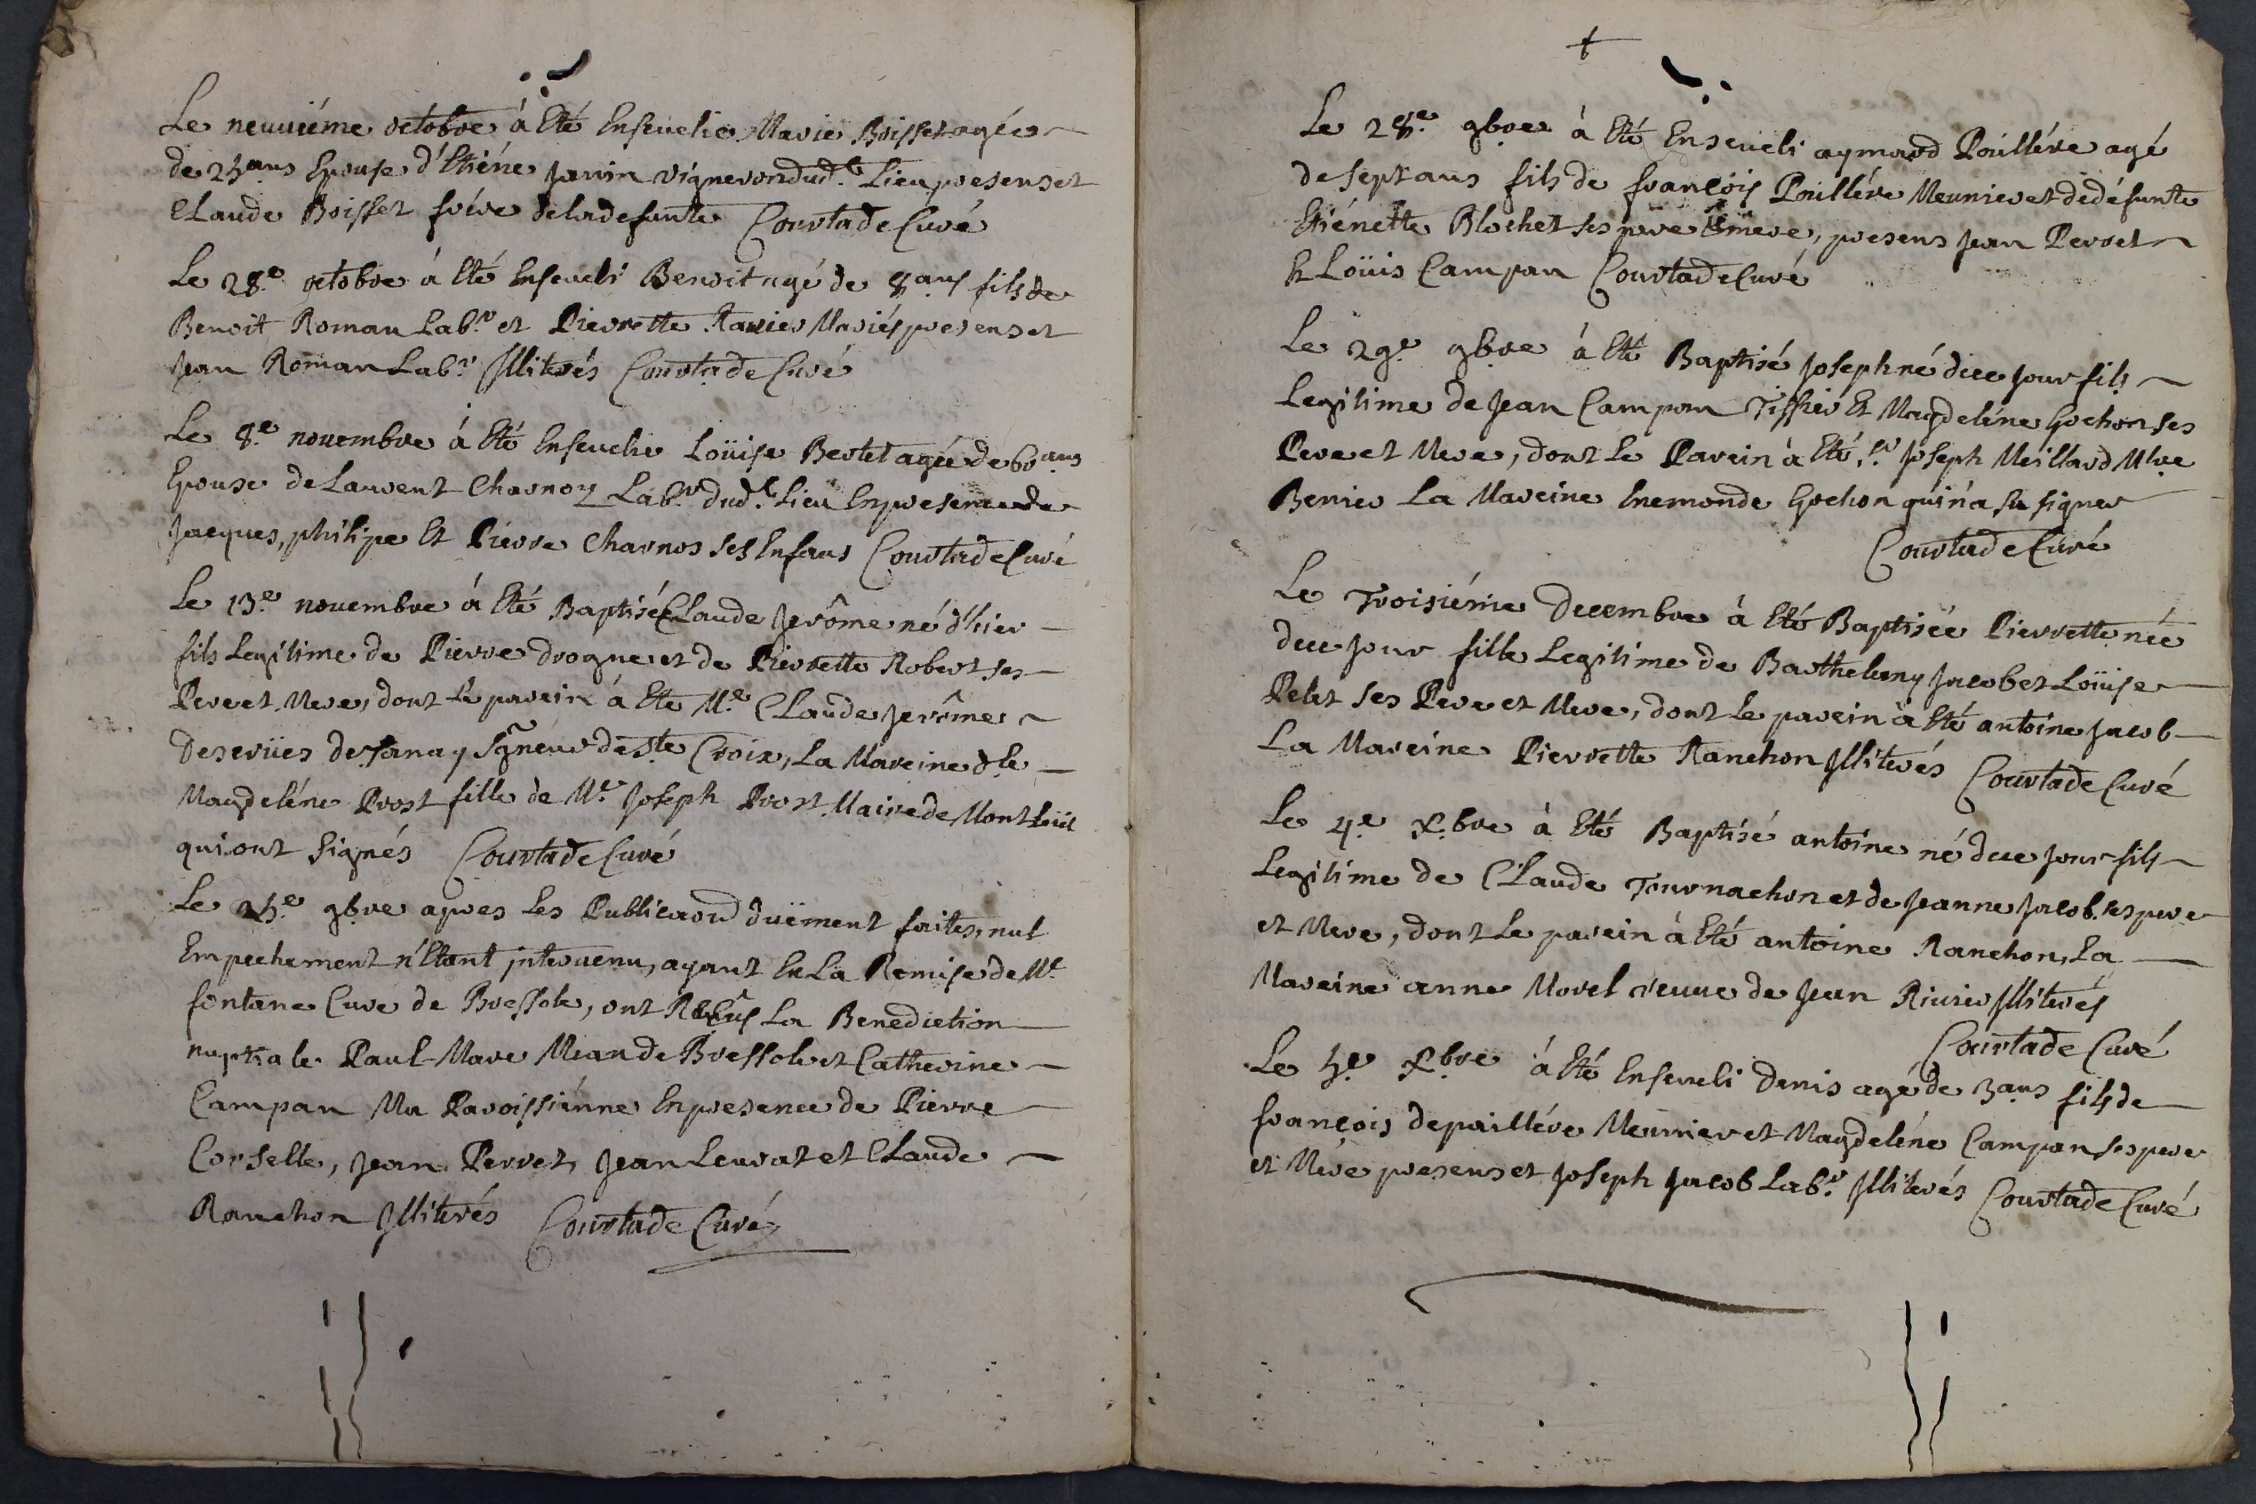 Le neuuiéme octobre à Eté Enseuelie Marie Boisset agée
de 25 ans Epouse d'Etiéne Janin vigneron dud.t Lieu presens et
Claude Boisset frére de la defunte Courtade Curé
Le 28.e octobre à Eté Enseueli Benoit agé de 8 ans fils de
Benoit Roman Lab.r et Pierrette Ranier Mariés presens et
Jean Roman Lab.r Jllitérés Courtade Curé
Le 8.e nouembre à Eté Enseuelie Loüise Bertet agée de 60 ans
Epouse de Laurent Charnoz Lab.r dud.t Lieu En presence de
Jacques, philipe Et Pierre Charnos ses Enfans Courtade Curé
Le 13.e nouembre à Eté Baptisé Claude Jerôme né d'hier
fils Legitime de Pierre drogue et de Pierrette Robert ses
Pere et Mere, dont le parein à Eté M.e Claude Jerôme
Deseruies de Janay Sgneur de Ste Croix, La Mareine dle
Magdeléne Prost fille de M.e Joseph Prost Maire de Montluel
qui ont Signés Courtade Curé
Le 25.e 9bre apres les Publicaons duëment faites, nul
Empechement n'Etant jnteruenu, ayant Eu La Remise de M.e
fontane Curé de Bressole, ont Reçus La Benediction
nuptiale Paul Marc Mean de Bressole et Catherine
Campan Ma Paroissiénne En presence de Pierre
Corselle, Jean Perret, Jean Leurat et Claude
Ranchon Jllitérés Courtade Curé
Le 28.e 9bre à Eté Enseueli aymard Poilléve agé
de sept ans fils de françois Poilléve Meunier et de défunte
Etiénette Blochet ses pere & mere, presens Jean Perret
Et Loüis Campan Courtade Curé
Le 29.e 9bre à Eté Baptisé Joseph né de ce Jour fils
Legitime de Jean Campan Tissier Et Magdeléne Gochon ses
Pere et Mere, dont Le Parein à Eté S.r Joseph Meillard Mtre
Benier La Mareine Enemonde Gochon qui n'a su signer
Courtade Curé
Le Troisiéme Decembre à Eté Baptisée Pierrette née
de ce Jour fille Legitime de Barthelemy Jacob et Loüise
Pelet ses Pere et Mere, dont Le parein à Eté antoine Jacob
La Mareine Pierrette Ranchon Jllitérés Courtade Curé
Le 4.e X.bre à Eté Baptisé antoine né de ce Jour fils
Legitime de Claude Tournachon et de Jeanne Jacob. ses pere
et Mere, dont Le parein à Eté antoine Ranchon, La
Mareine anne Morel veuue de Jean Riuier Jllitérés
Courtade Curé
Le 5.e X.bre à Eté Enseueli Denis agé de 3 ans fils de
françois depailléve Meunier et Magdeléne Campan ses pere
et Mére presens et Joseph Jacob Lab.r Jllitérés Courtade Curé